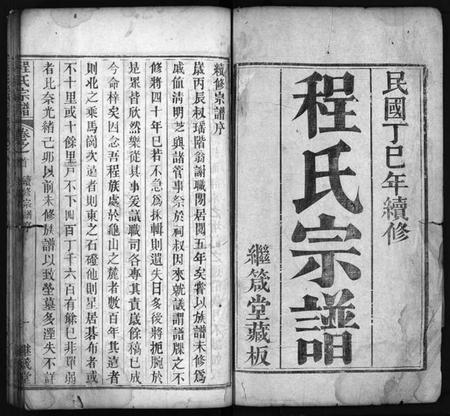 民國丁巳年續修
程氏宗譜
繼箴堂藏板
續修宗譜序
歲丙辰叔瑶階翁謝職閒居閱五年矣嘗以族譜未修為
戚値清明芝與諸管事祭於祠叔因來就議謂譜牒之不
修將四十年已若不急為採輯則遺失日多後將扼腕於
是眾皆欣然樂從其事爰議職司各專其責歲餘稿已成
今命梓矣因念吾程族處於龜山之麓者數百年其遠者
則北之乘馬崗次遠者則東之石磴他則星居碁布者或
不十里或十餘里戸不下四百丁千六百有餘已非單弱
者比奈光緒己卯以前未修族譜以致坐墓多湮失不訂
程氏宗譜
卷之首
續修宗譜序
一
繼箴堂